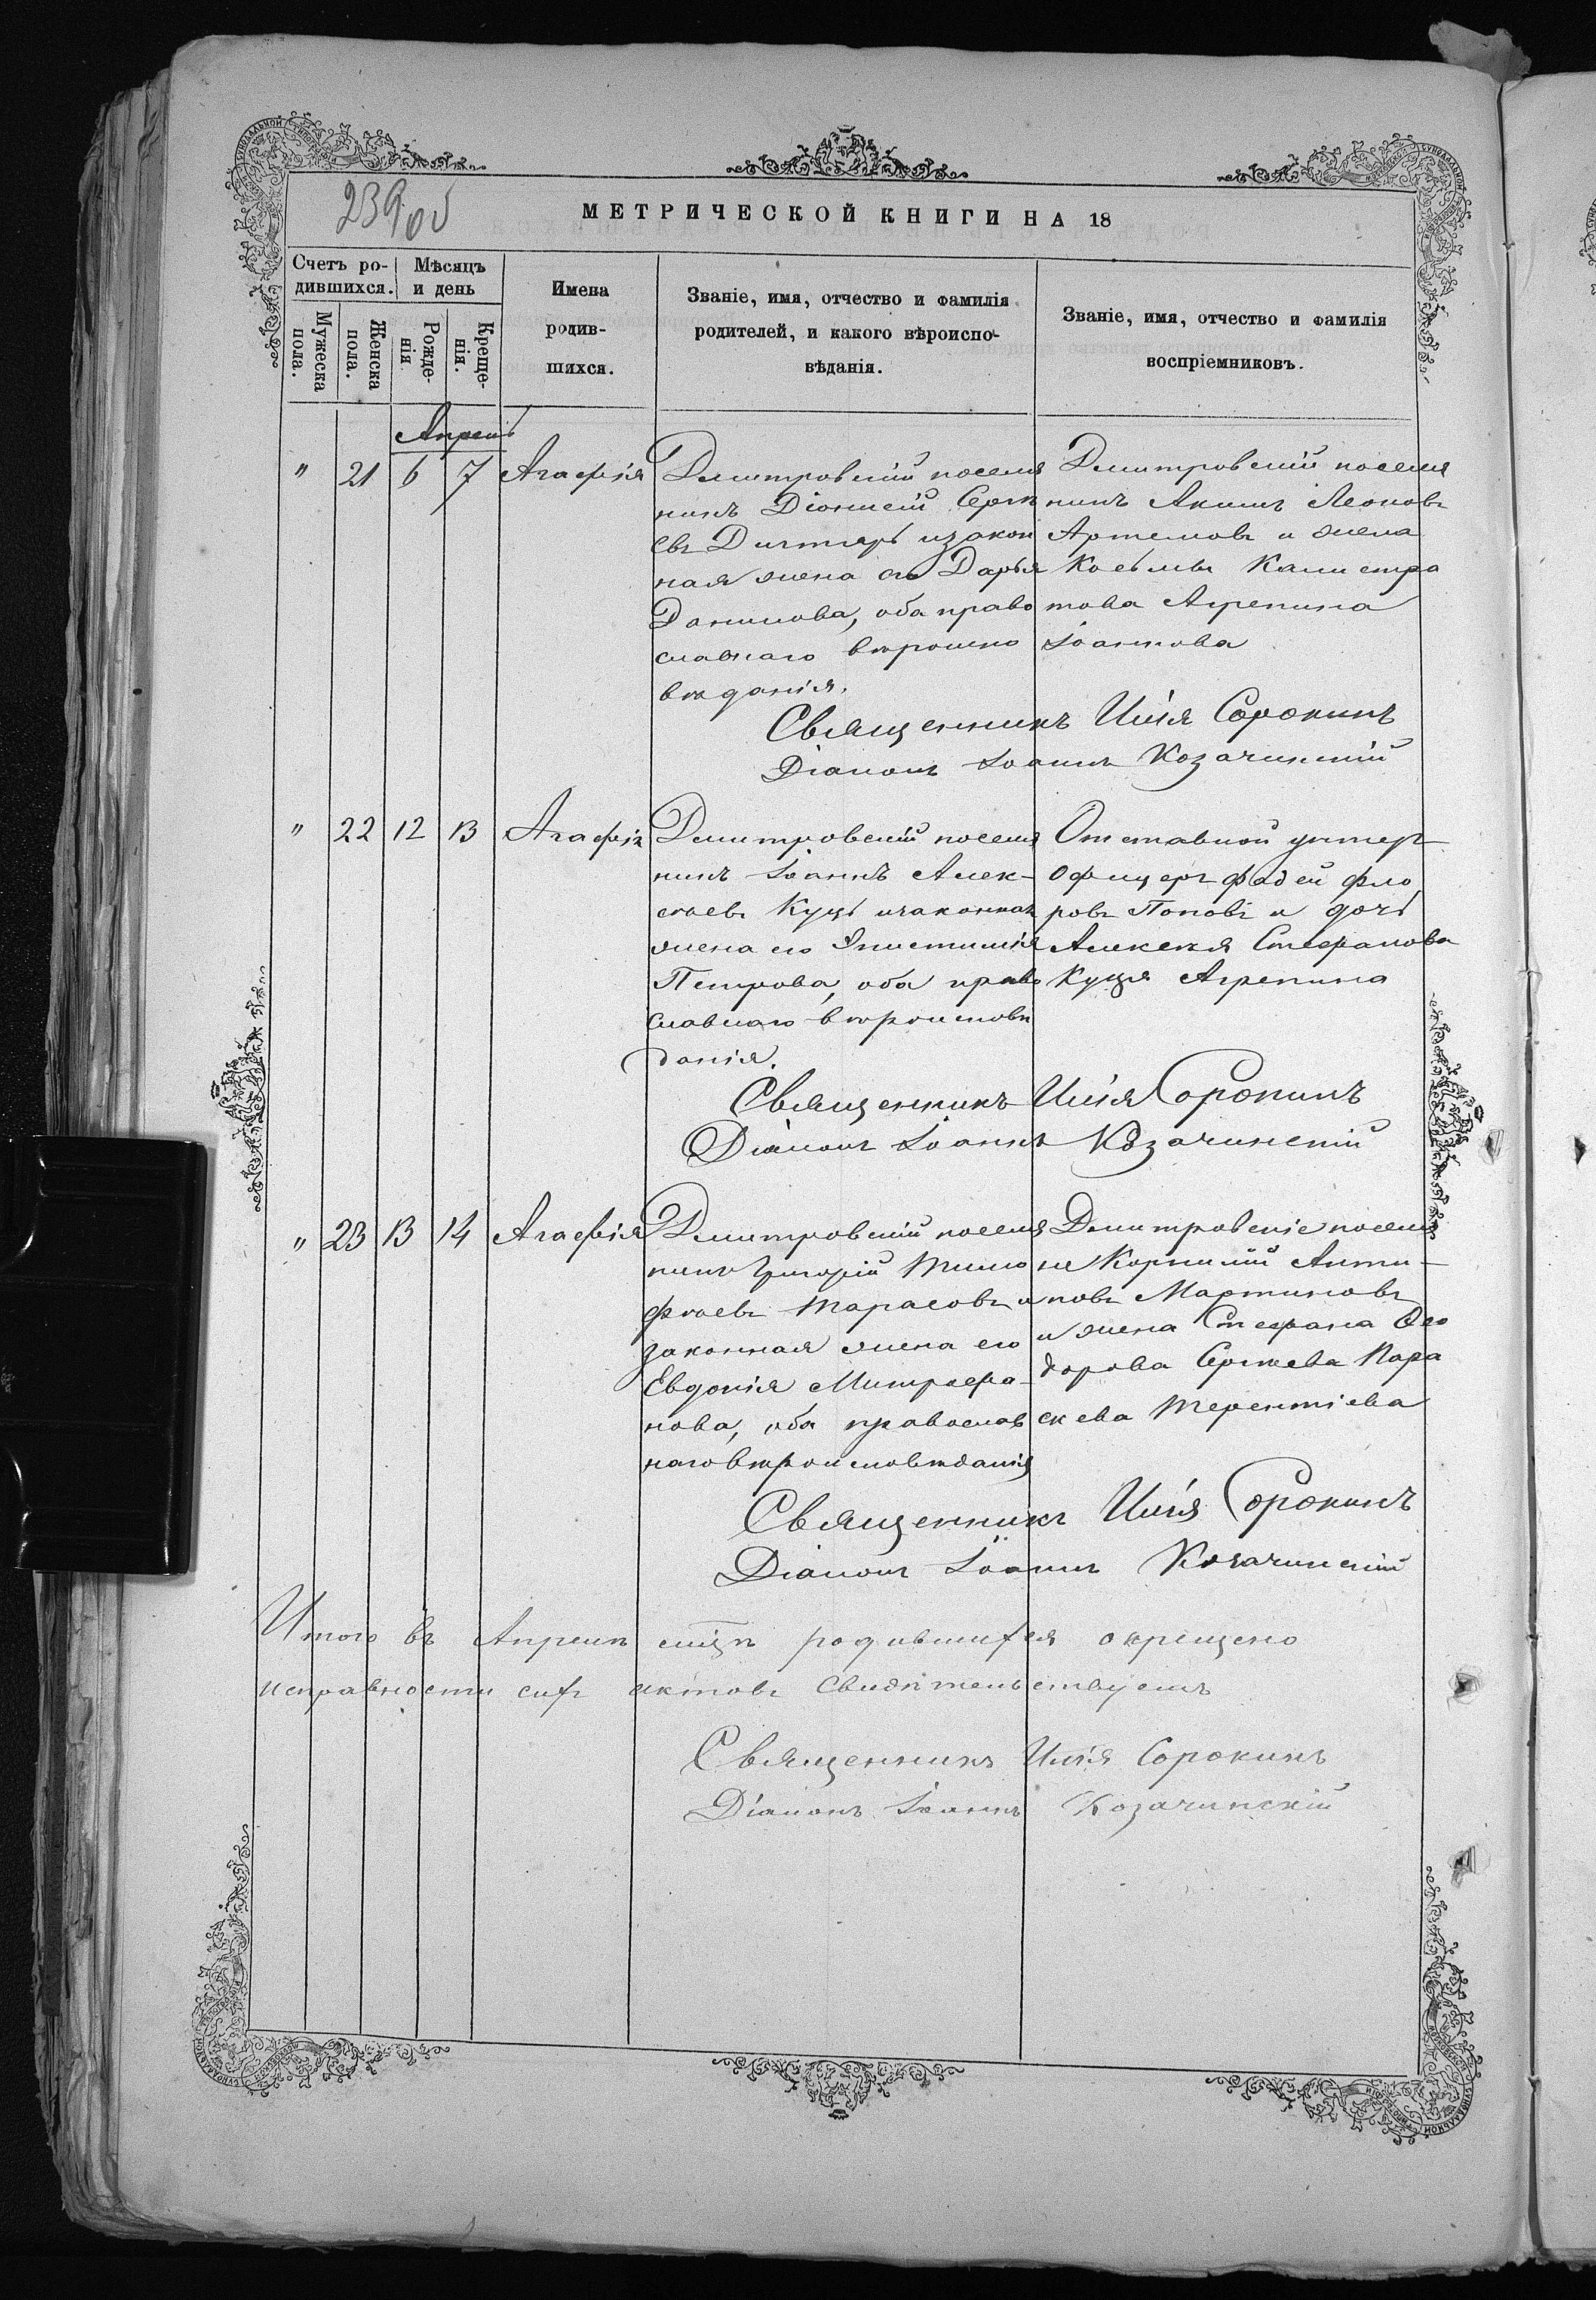 239 об
МЕТРИЧЕСКОЙ КНИГИ НА 18
Счетъ ро-
дившихся.
Мѣсяцъ
и день
Мужеска
пола.
Женска
пола.
Рожде-
нія
Креще-
нія.
Имена
родив-
шихся.
Званіе, имя, отчество и фамилія
родителей, и какого вѣроиспо-
вѣданія.
Званіе, имя, отчество и фамилія
воспріемниковъ.
Апрель
" 21 6 7 Агафія
Дмитровскій поселя
нинъ Діонисій Серге
евъ Дигтярь и закон
ная жена его Дарья
Данилова, оба право
славнаго вѣроиспо
вѣданія.
Дмитровскій поселя
нинъ Акимъ Леоновъ
Артемовъ и жена
Косьмы Калистра
това Агрепина
Іоаннова
Священникъ Илія Сорокинъ
Діаконъ Іоаннъ Козачинскій
" 22 12 13 Агафія
Дмитровскій поселя
нинъ Іоаннъ Алек-
сѣевъ Куць и законная
жена его Епистимія
Петрова, оба право
славнаго вѣроисповѣ
данія.
Отставной унтер-
офицеръ Фадей Фло
ровъ Поповъ и дочь
Алексѣя Стефанова
Куця Агрепина
Священникъ Илія Сорокинъ
Діаконъ Іоаннъ Козачинскій
" 23 13 14 Агафія
Дмитровскій поселя
нинъ Григорій Тимо
фѣевъ Тарасовъ и
законная жена его
Евдокія Митрофа-
нова, оба православ
наго вѣроисповѣданія
Дмитровскіе поселя
не Корнилій Анти-
повъ Мартиновъ
и жена Стефана Ѳео
дорова Сергѣева Пара
скева Терентіева
Священникъ Илія Сорокинъ
Діаконъ Іоаннъ Козачинскій
Итого въ Апрелѣ мцѣ родившихся окрещено
исправности сихъ актовъ свидѣтельствуемъ
Священникъ Илія Сорокинъ
Діаконъ Іоаннъ Козачинскій